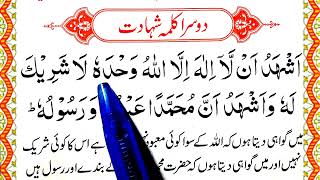 دوسرا کلمہ شہادت
اَشْهَدُ اَنْ لَّا اِلٰهَ اِلَّا اللّٰهُ وَحْدَهٗ لَا شَرِيْكَ
لَهٗ وَاَشْهَدُ اَنَّ مُحَمَّدًا وَرَسُوْلُهٗ ؕ
میں گواہی دیتا ہوں کہ اللہ کے سوا کوئی معبود ہے اس کا کوئی شریک
نہیں اور میں گواہی دیتا ہوں کہ حضرت کے بندے اور رسول ہیں